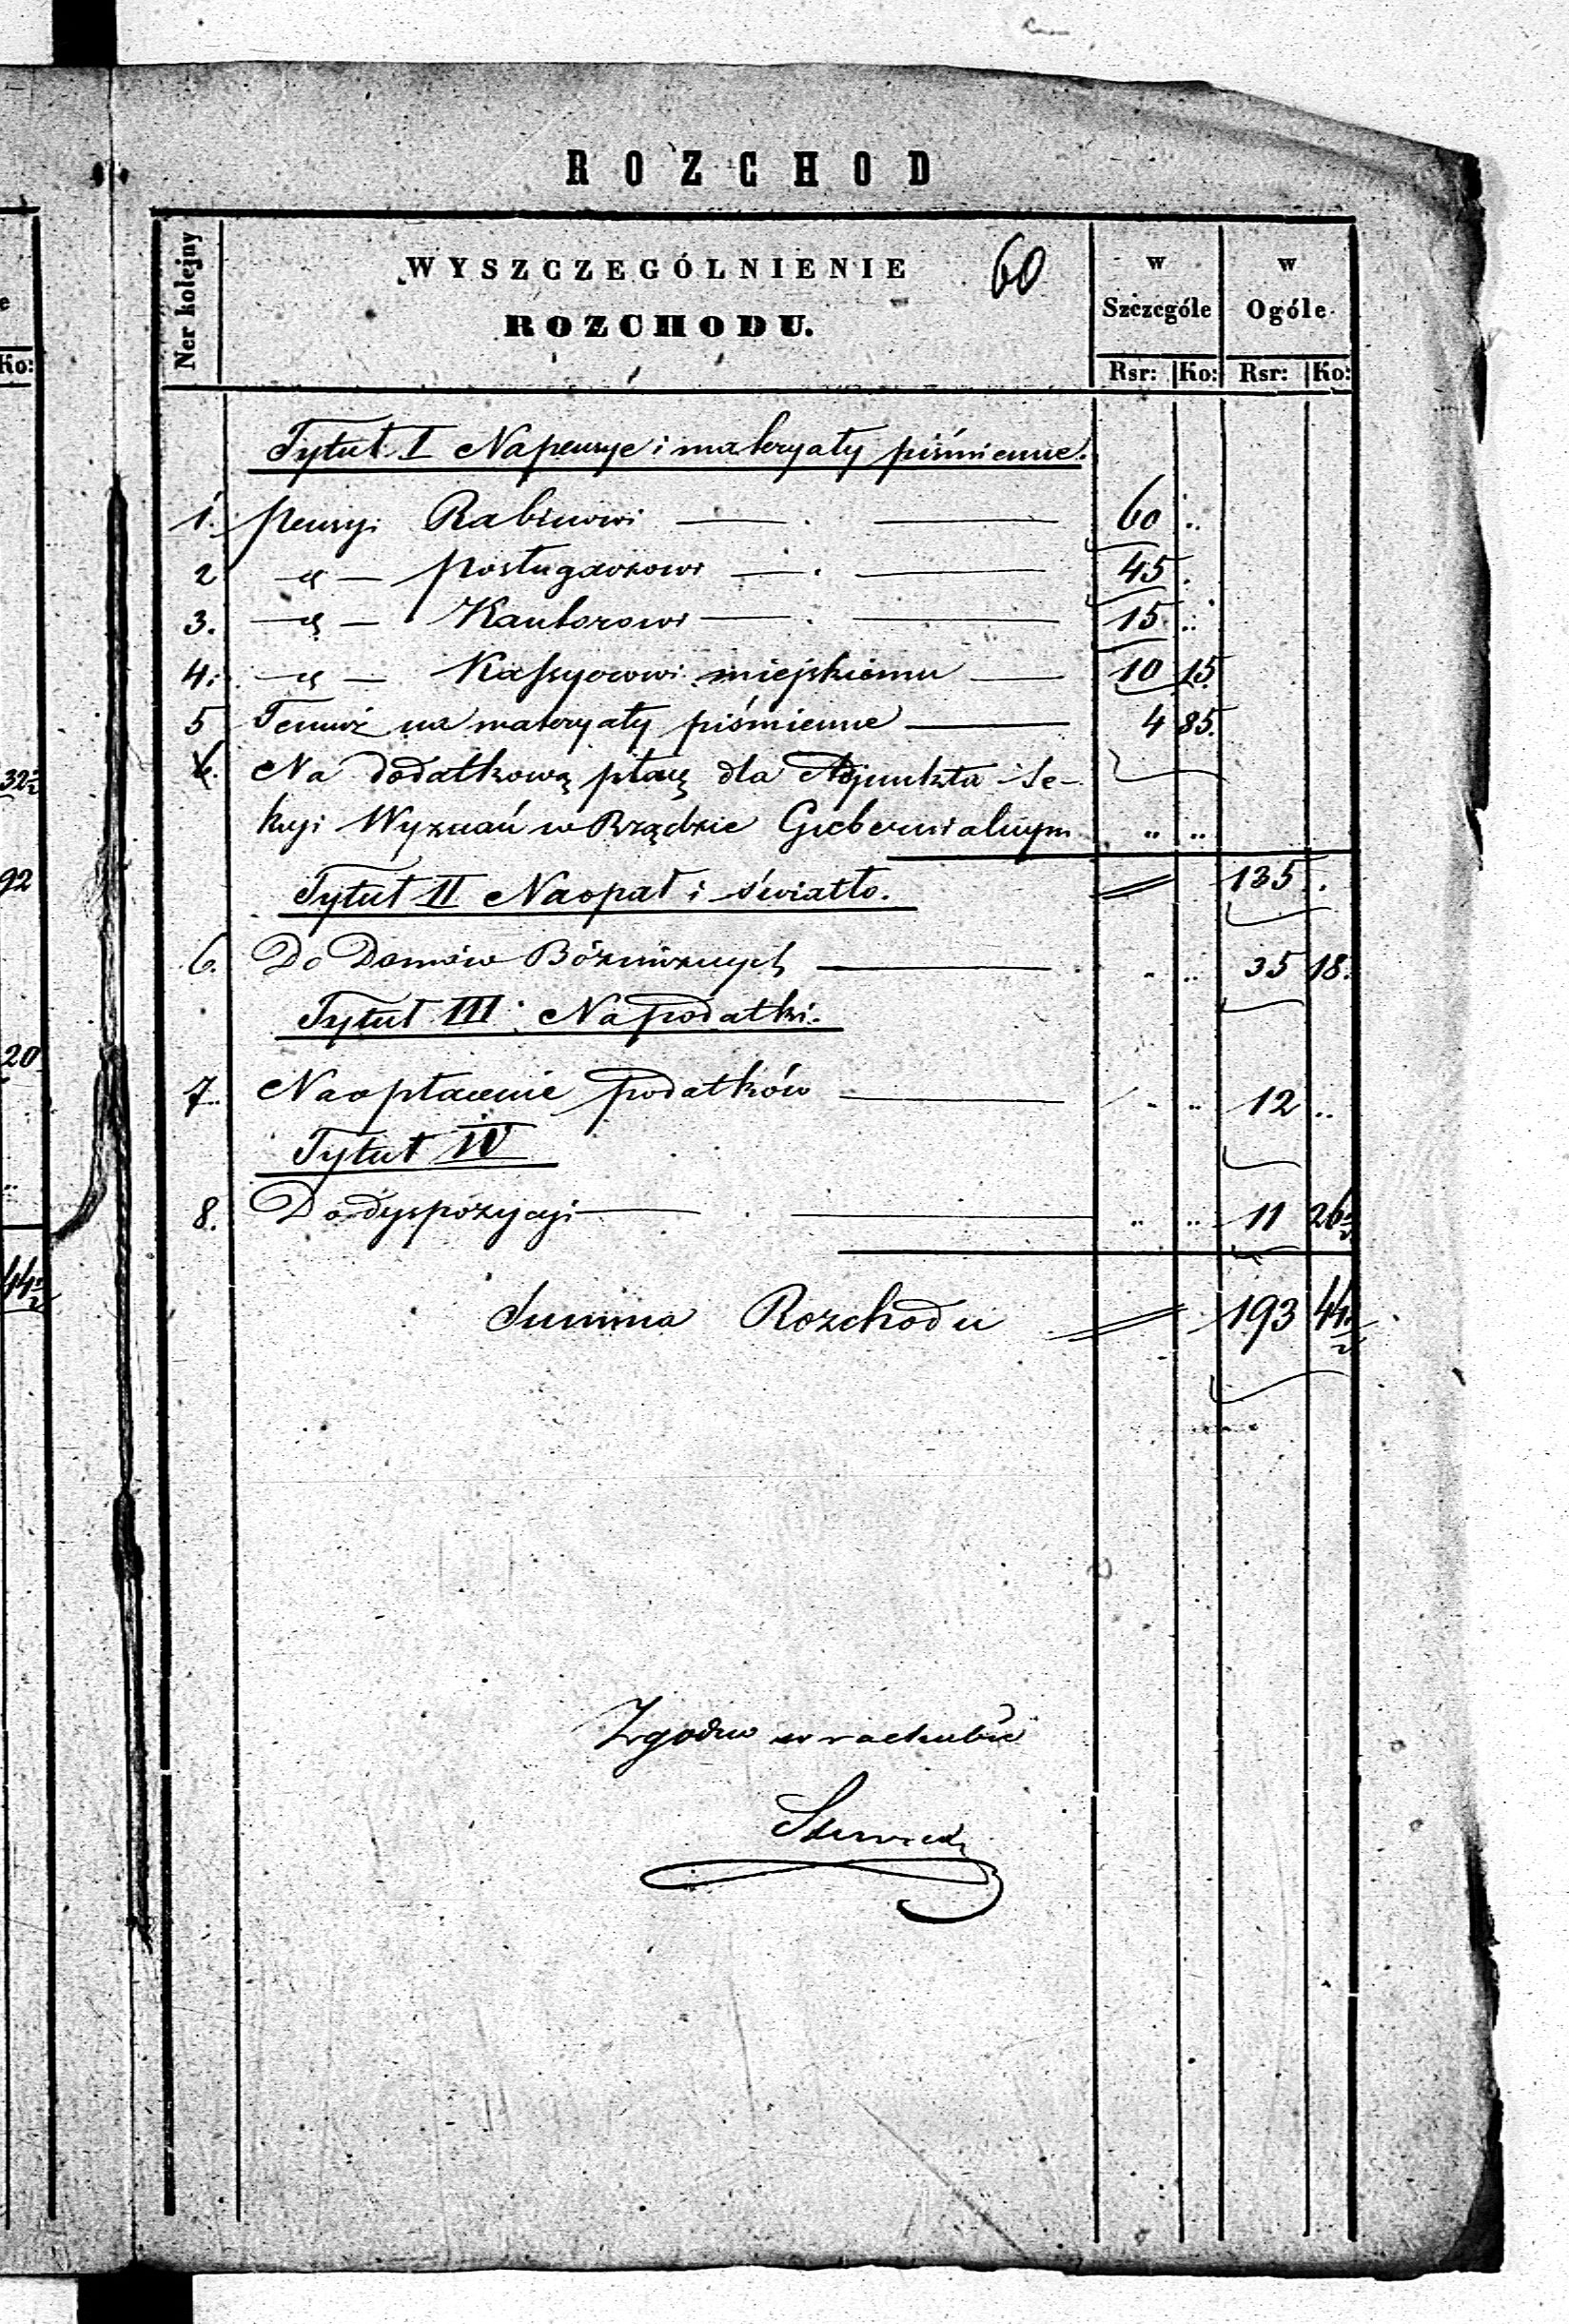 ROZCHOD
Ner kolejny
WYSZCZEGÓLNIENIE
ROZCHODU.
60
w Szczególe
w Ogóle
Rsr: Ko: Rsr: Ko:
e
Ko:
Tytuł I Na pensye i materyały piśmienne.
1. pensyi Rabinowi — . — 60 ..
2 — „ — posługaczowi — . — 45 .
3. — „ — Kantorowi — . — 15 ..
4. — „ — Kassyerowi miejskiemu — 10 15.
5 Temuż na materyały piśmienne — 4 85.
6. Na dodatkową płacę dla Adjunkta Se-
kcyi Wyznań w Rządzie Gubernialnym .. ..
32½
135 .
Tytuł II Na opał i światło.
92
6. Do Domów Bóżniczych — .. .. 35 18.
Tytuł III Na podatki.
20
7. Na opłacenie podatków — .. .. 12 ..
Tytuł IV
8. Do dyspozycyi — . — .. .. 11 26½
44½
Summa Rozchodu 193 44½
Zgodno w rachubie